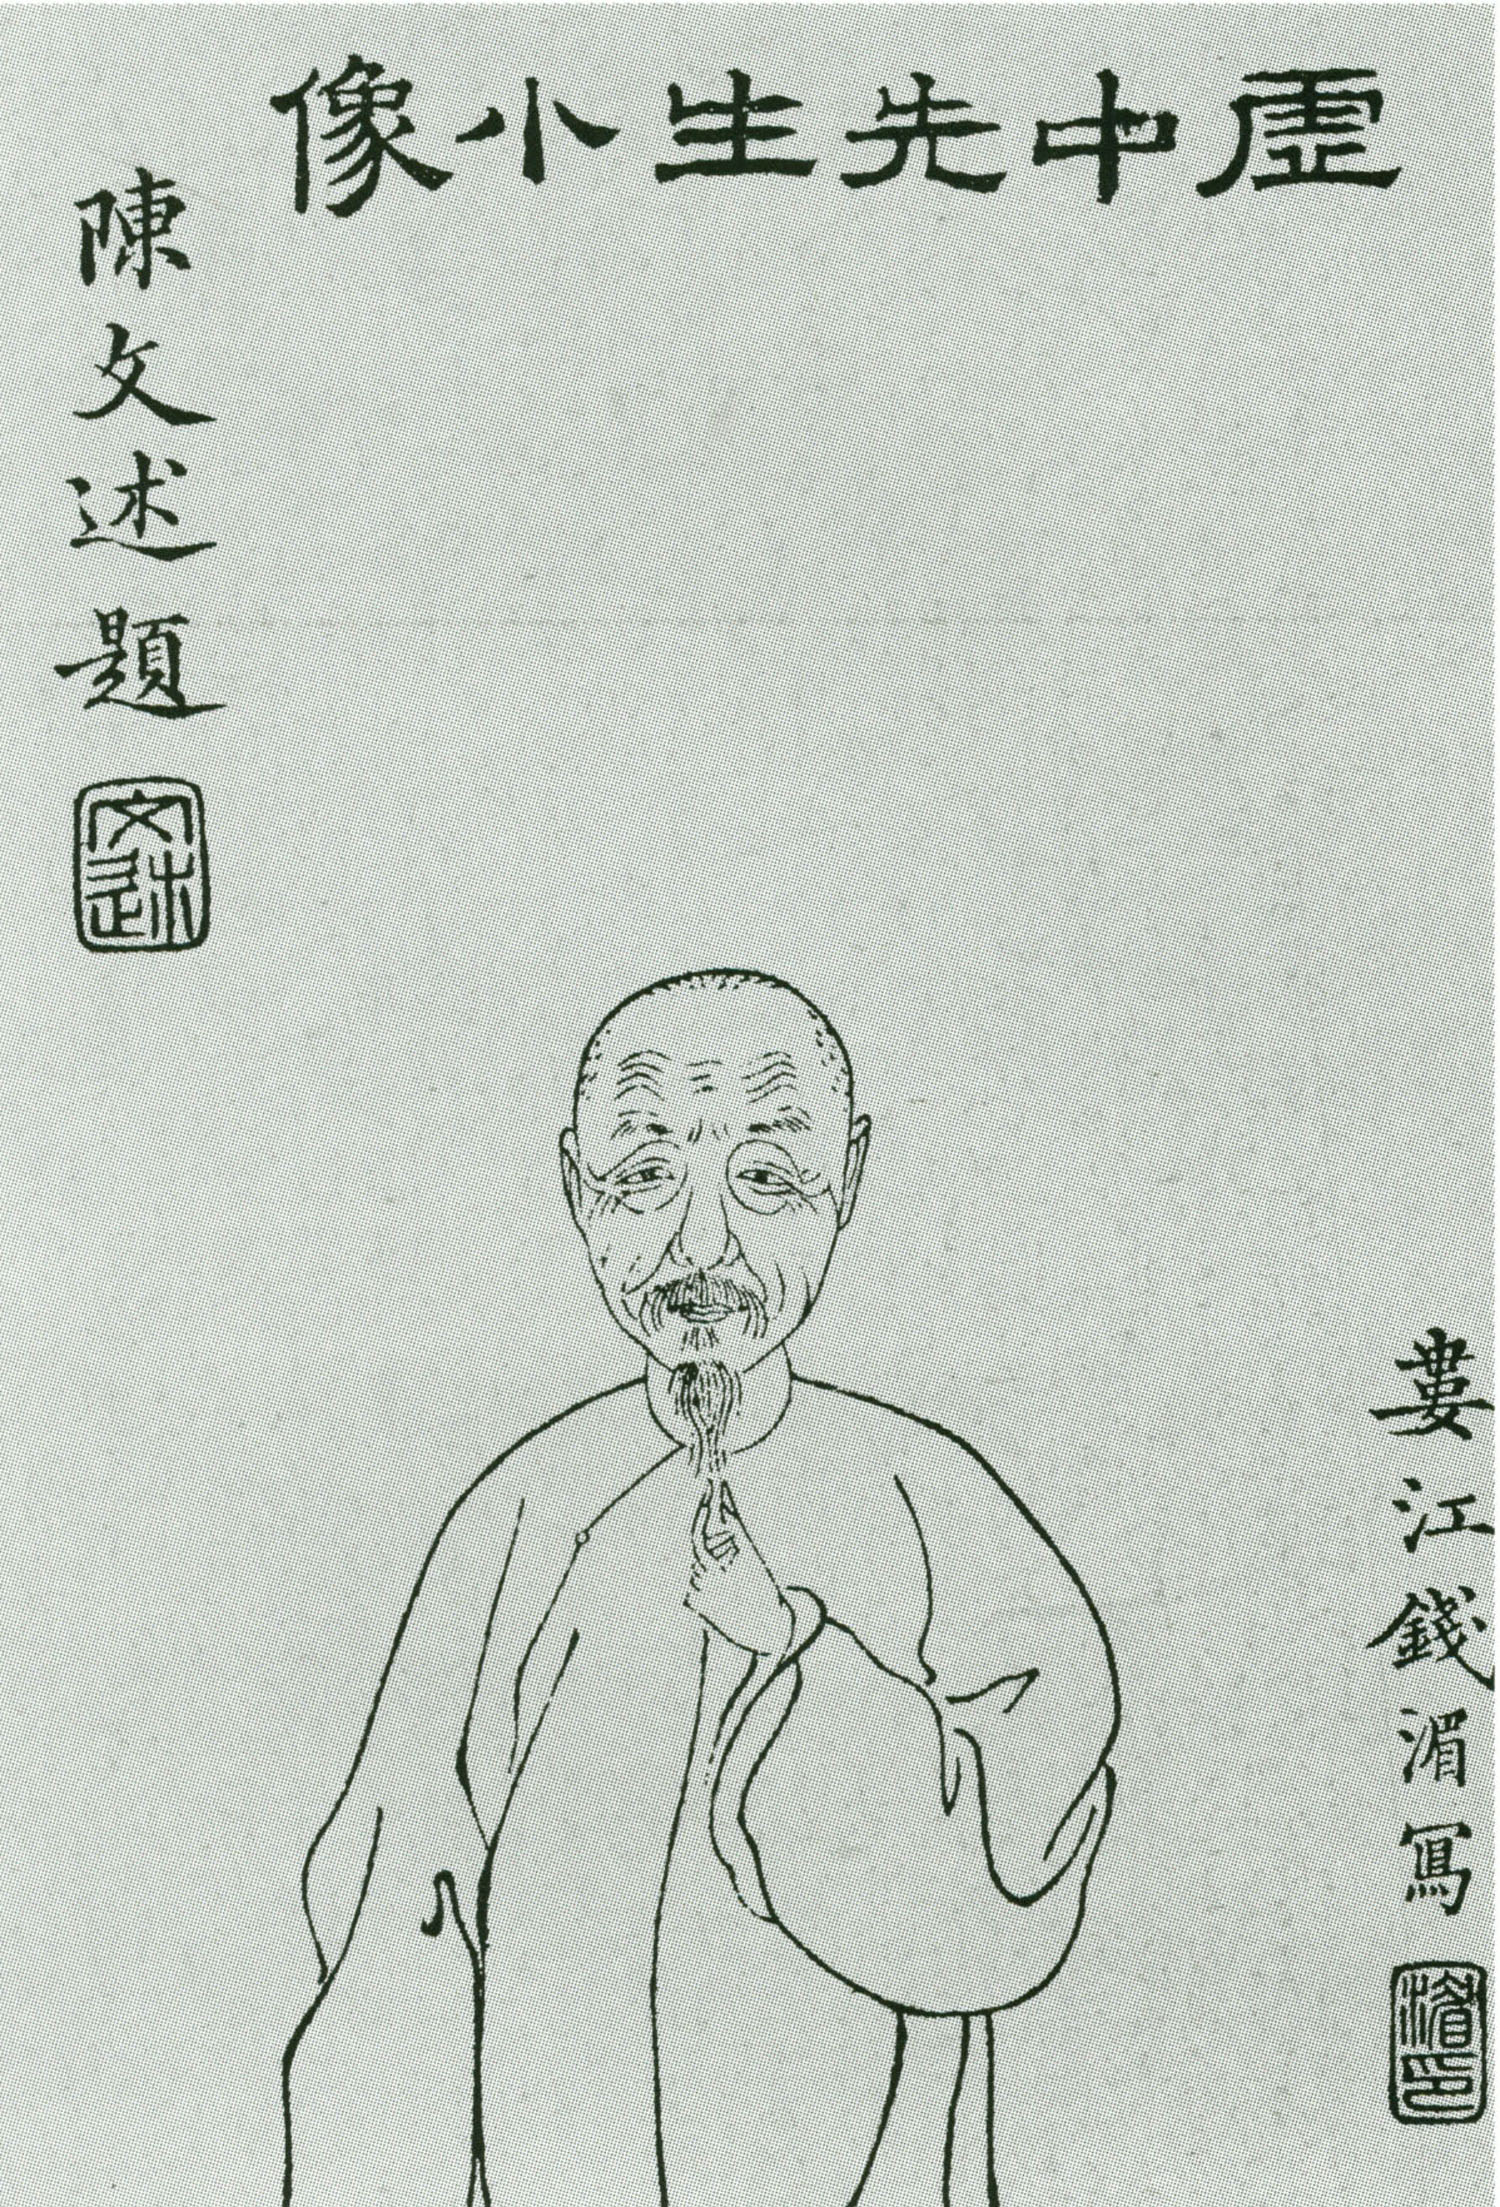 虛中先生小像
陳文述題
文述
婁江錢湄寫
湄印